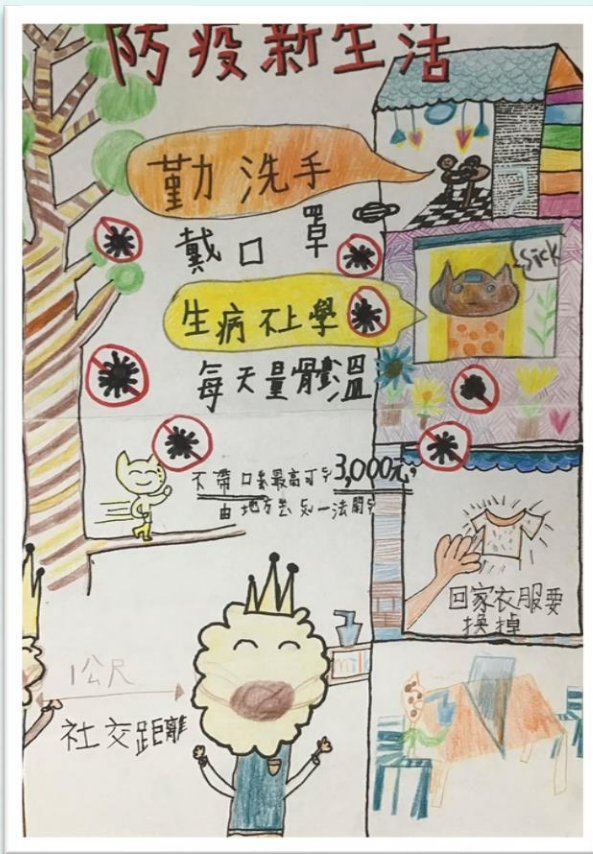 防疫新生活
勤洗手
戴口罩
sick
生病不上學
每天量體溫
不帶口罩最高可 3,000元
由地方 一法開
回家衣服要
換掉
1公尺
社交距離